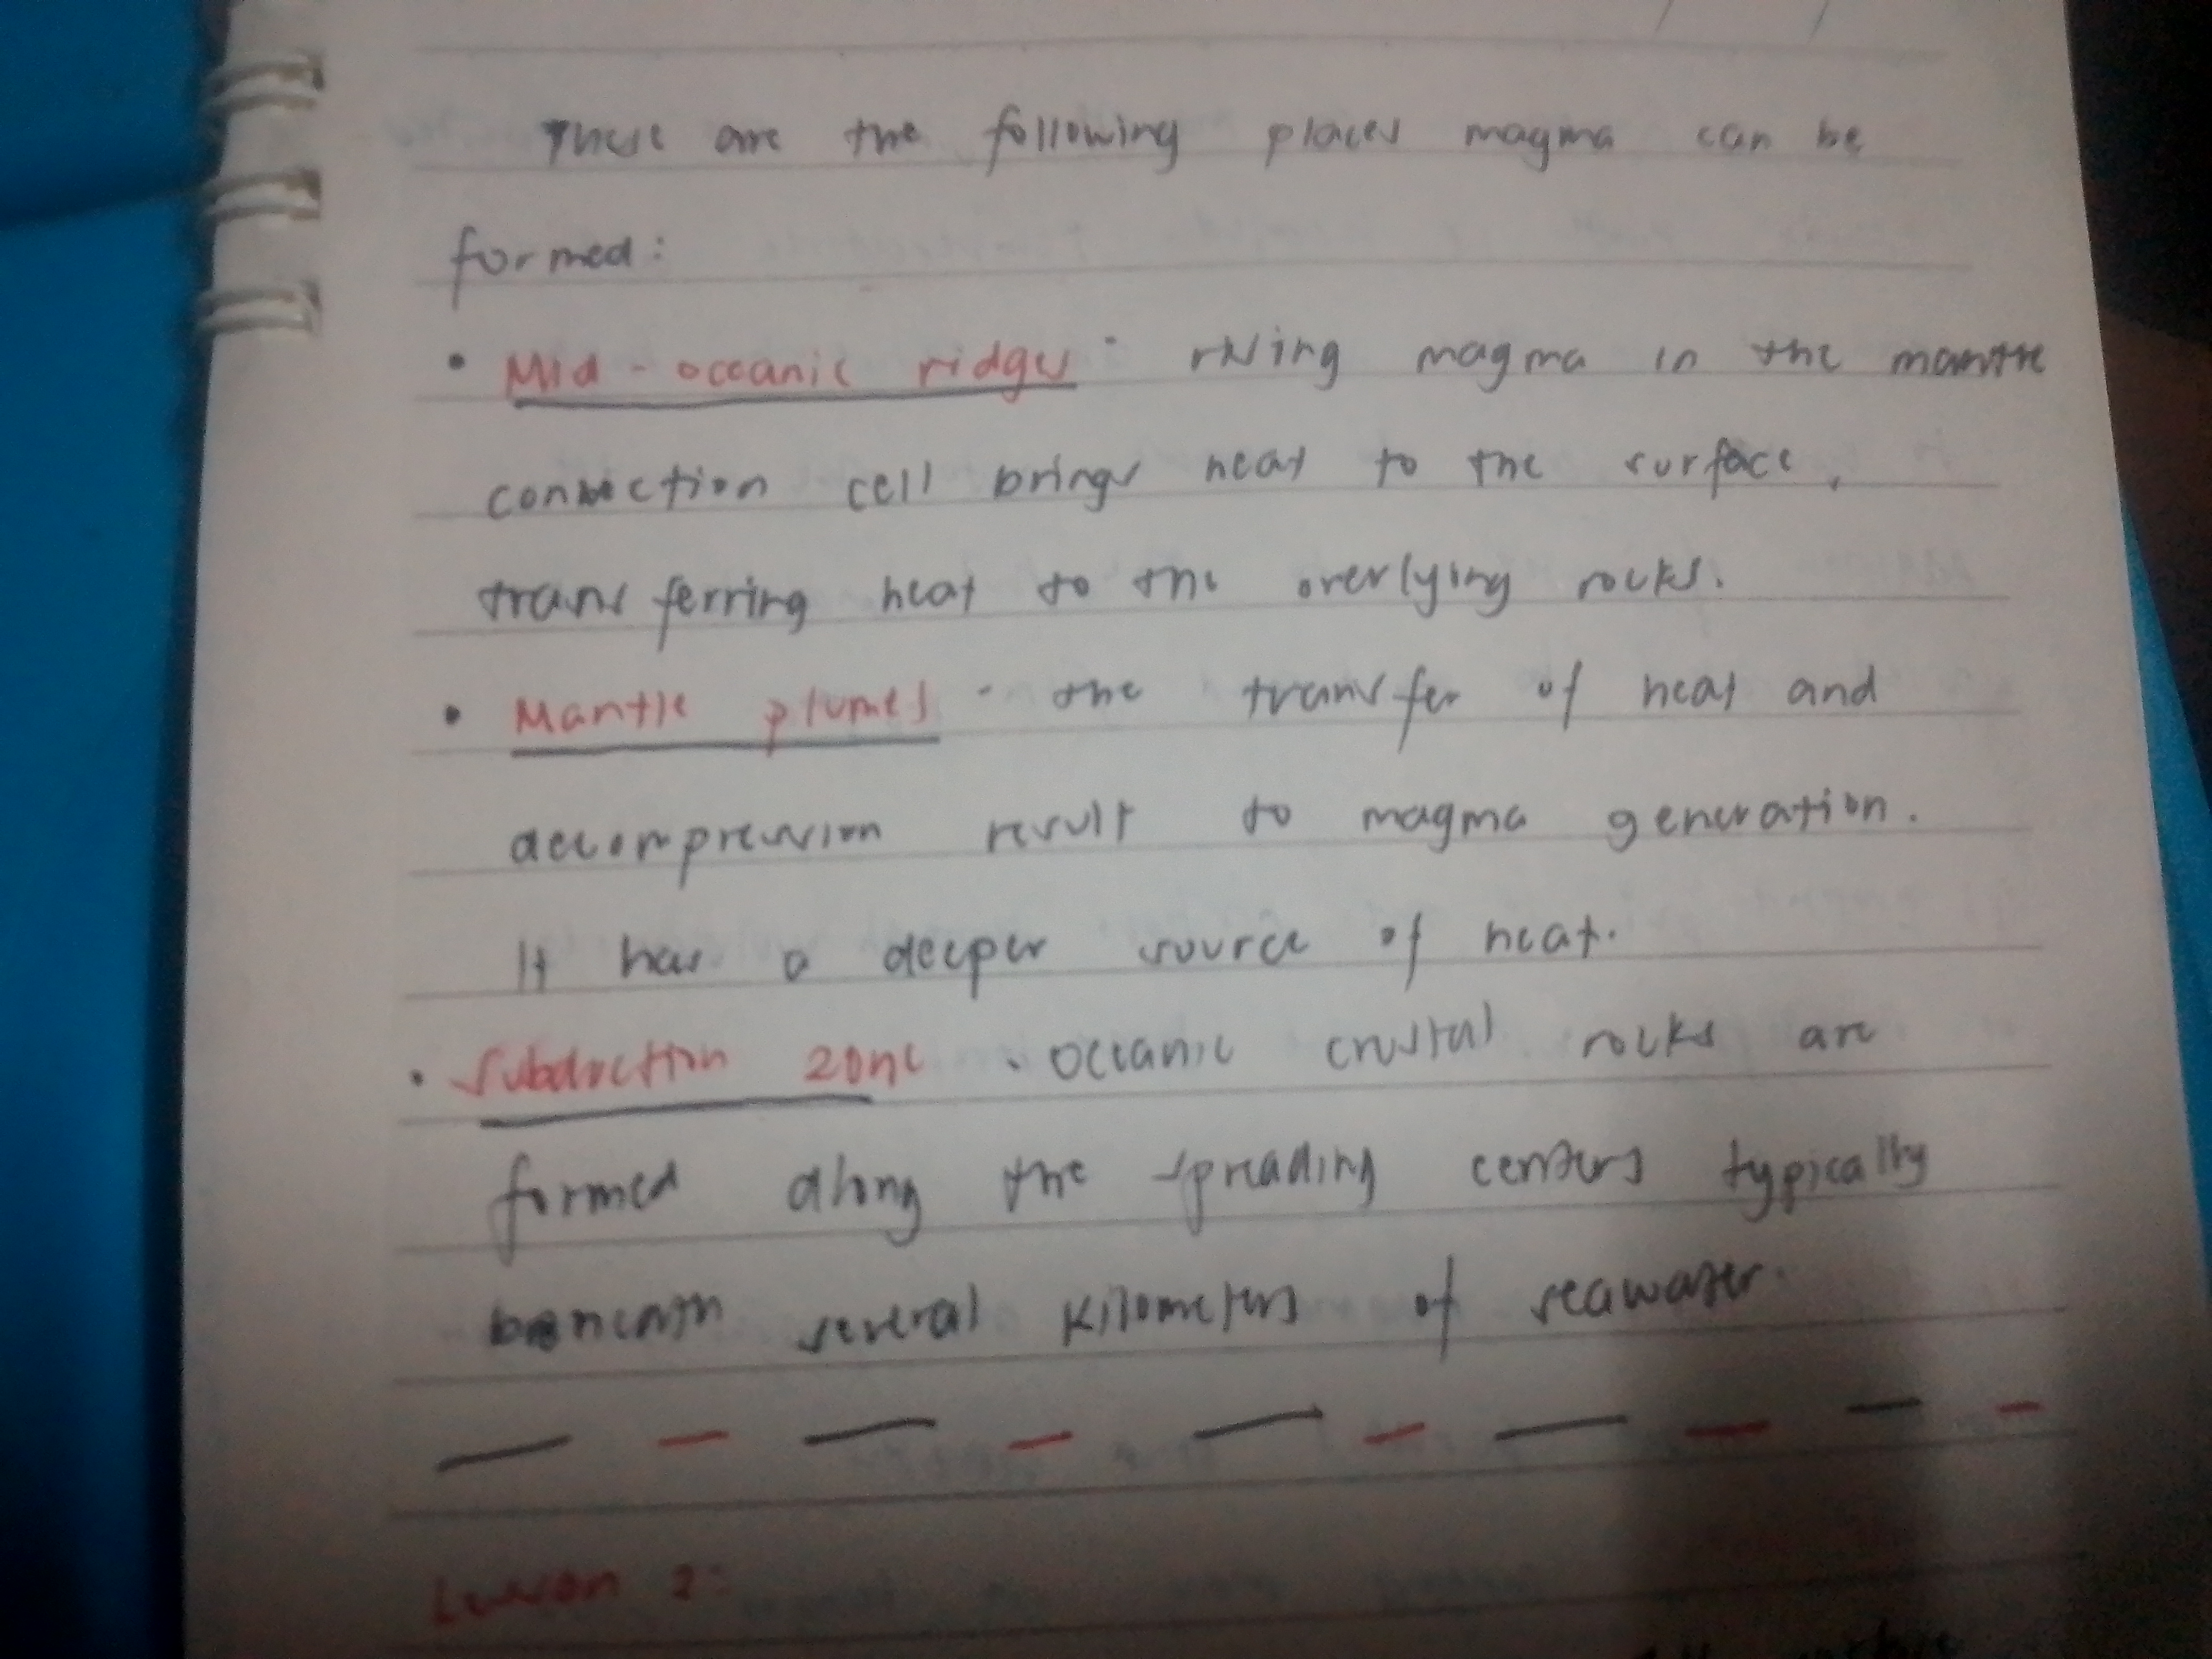 These are the following places magma can be
formed:
• Mid-oceanic ridges - rising magma in the mantle
convection cell brings heat to the surface,
transferring heat to the overlying rocks.
• Mantle plumes - the transfer of heat and
decompression result to magma generation.
It has a deeper source of heat.
• Subduction zone - Oceanic crustal rocks are
formed along the spreading centers typically
beneath several kilometers of seawater.
Lesson 2: